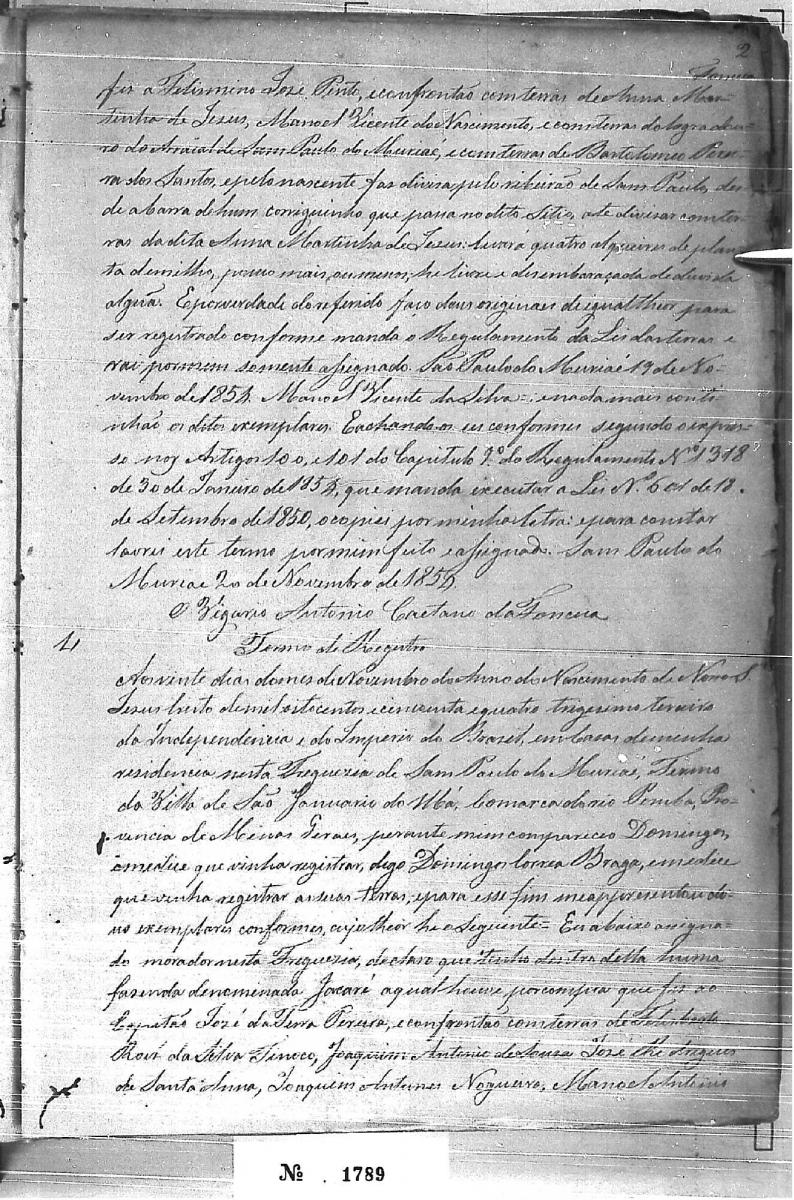 2
Fonseca
fiz a Felismino José Pinto, e confrontão com terras de Anna Mar-
tinha de Jesus, Manoel Vicente do Nascimento, e com terras do logradou-
ro do Arraial de Sam Paulo do Muriaé, e com terras de Bartolomeo Perei-
ra dos Santos, e pelo nascente faz divisa pelo ribeirão de Sam Paulo, des-
de a barra de hum corriguinho que passa no dito Sitio, até divisar com ter-
ras da dita Anna Martinha de Jesus: levará quatro alqueires de plan-
ta de milho, pouco mais, ou menos, he livre e desembaraçada de duvida
algũa. E por verdade do referido faço dous originaes de igual theor para
ser registrado conforme manda o Regulamento da Lei das terras e
vai por mim somente assignado. São Paulo do Muriaé 19 de No-
vembro de 1854. Manoel Vicente da Silva =: e nada mais conti-
nhão os ditos exemplares. E achando-os eu conformes segundo o expres-
so nos Artigos 100, e 101 do Capitulo 9º do Regulamento Nº 1318
de 30 de Janeiro de 1854, que manda executar a Lei Nº 601 de 18.
de Setembro de 1850, o copiei por minha letra: e para constar
lavrei este termo por mim feito e assignado. Sam Paulo do
Muriaé 20 de Novembro de 1854.
O Vigario Antonio Caetano da Fonseca
4
Termo de Registro
Aos vinte dias do mes de Novembro do Anno do Nascimento de Nosso S.
Jesus Cristo de mil oitocentos e cincoenta e quatro trigesimo terceiro
da Independencia e do Imperio do Brasil, em Casas de minha
residencia nesta Freguezia de Sam Paulo do Muriaé, Termo
da Villa de São Januario do Ubá, Comarca do rio Pomba, Pro-
vincia de Minas Geraes, perante mim compareceo Domingos,
e me dice que vinha registrar, digo Domingos Correa Braga, e me dice
que vinha registrar as suas terras, e para esse fim me appresentou do-
us exemplares conformes, cujo theor he o Seguinte = Eu abaixo assigna-
do morador nesta Freguezia, declaro que tenho dentro della huma
fazenda denomenada Jacaré a qual houve por compra que fiz ao
Capitão José da Terra Pereira, e confrontão com terras de
da Silva Tinoco, Joaquim Antonio de Souza José Rodrigues
de Santa Anna, Joaquim Antunes Nogueira, Manoel Antonio
Nº . 1789